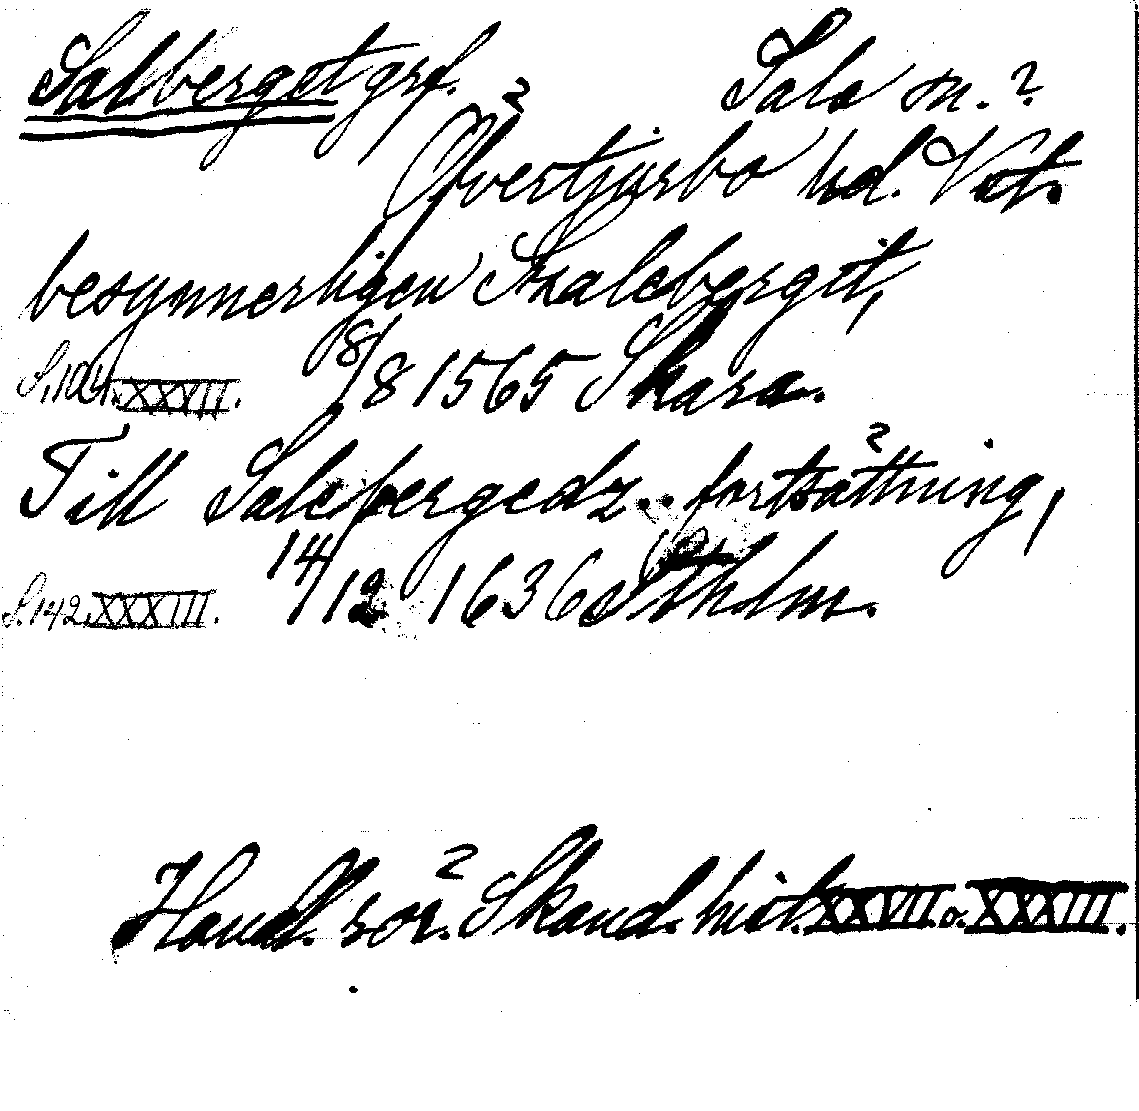 Salberget grf. Sala sn.?
Övertjurbo hd. Vstm.
besynnerligen Saleberget,
S. 104. XXVII. 18/8 1565 Skara.
Till Salebergedz .. fortsättning,
S. 142. XXXIII. 14/12 1636 Sthlm.
Handl. rör. Skand. hist. XXVII. o. XXXIII.